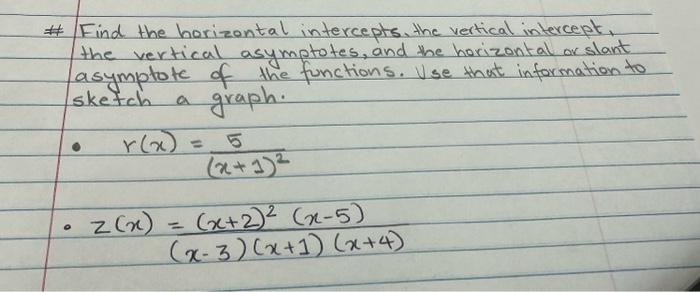 # Find the horizontal intercepts, the vertical intercept,
the vertical asymptotes, and the horizontal or slant
asymptote of the functions. Use that information to
sketch a graph.
• r(x) = 5
(x+1)²
• z(x) = (x+2)² (x-5)
(x-3)(x+1)(x+4)